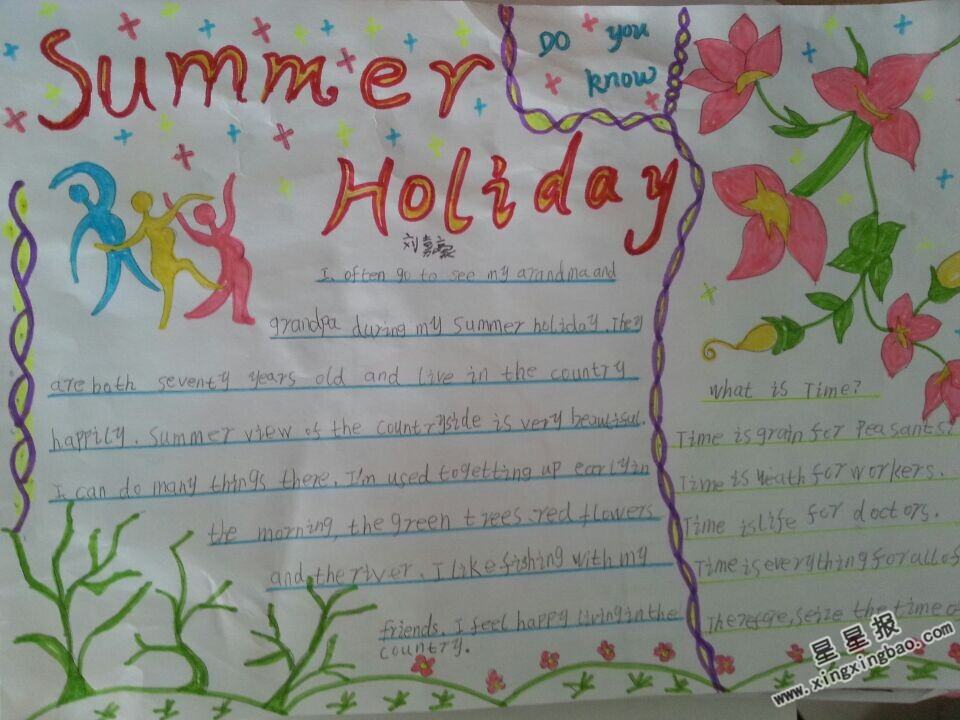 Summer
Holiday
DO you
know
刘嘉豪
I often go to see my grandma and
grandpa during my summer holiday. They
are both seventy years old and live in the country
happily. Summer view of the countryside is very beautiful.
I can do many things there. I'm used togetting up early in
the morning, the green trees. red flowers
and the river. I like fishing with my
friends. I feel happy living in the
country.
What is Time?
Time is grain for Peasants.
Time is Weath for workers.
Time is life for doctors.
Time is everything for all of
Therefore, seize the time
星星报
www.xingxingbao.com